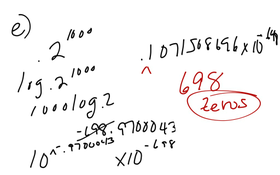 e)
.2^1000
log .2^1000
1000 log .2
-698.9700043
10^-.9700043 x10^-698
.1071508696 x10^-698
698
zeros